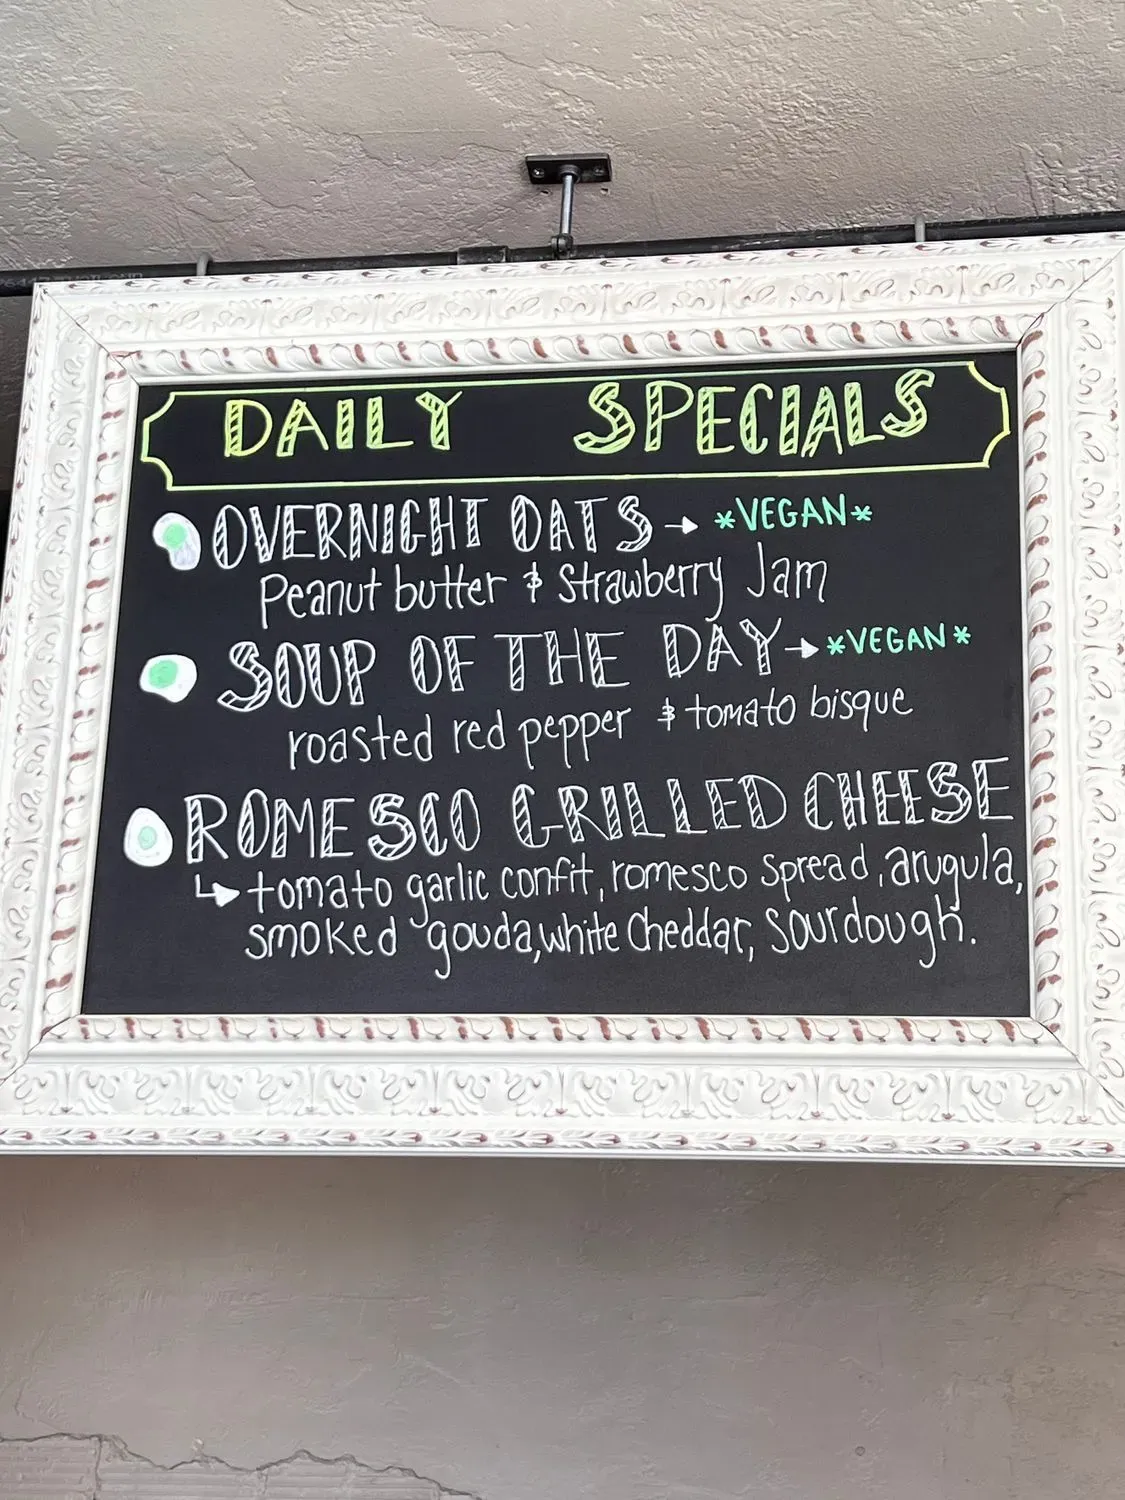 DAILY SPECIALS
OVERNIGHT OATS → *VEGAN*
Peanut butter & Strawberry Jam
SOUP OF THE DAY → *VEGAN*
roasted red pepper & tomato bisque
ROMESCO GRILLED CHEESE
↳ tomato garlic confit, romesco spread, arugula,
smoked gouda, white Cheddar, Sourdough.